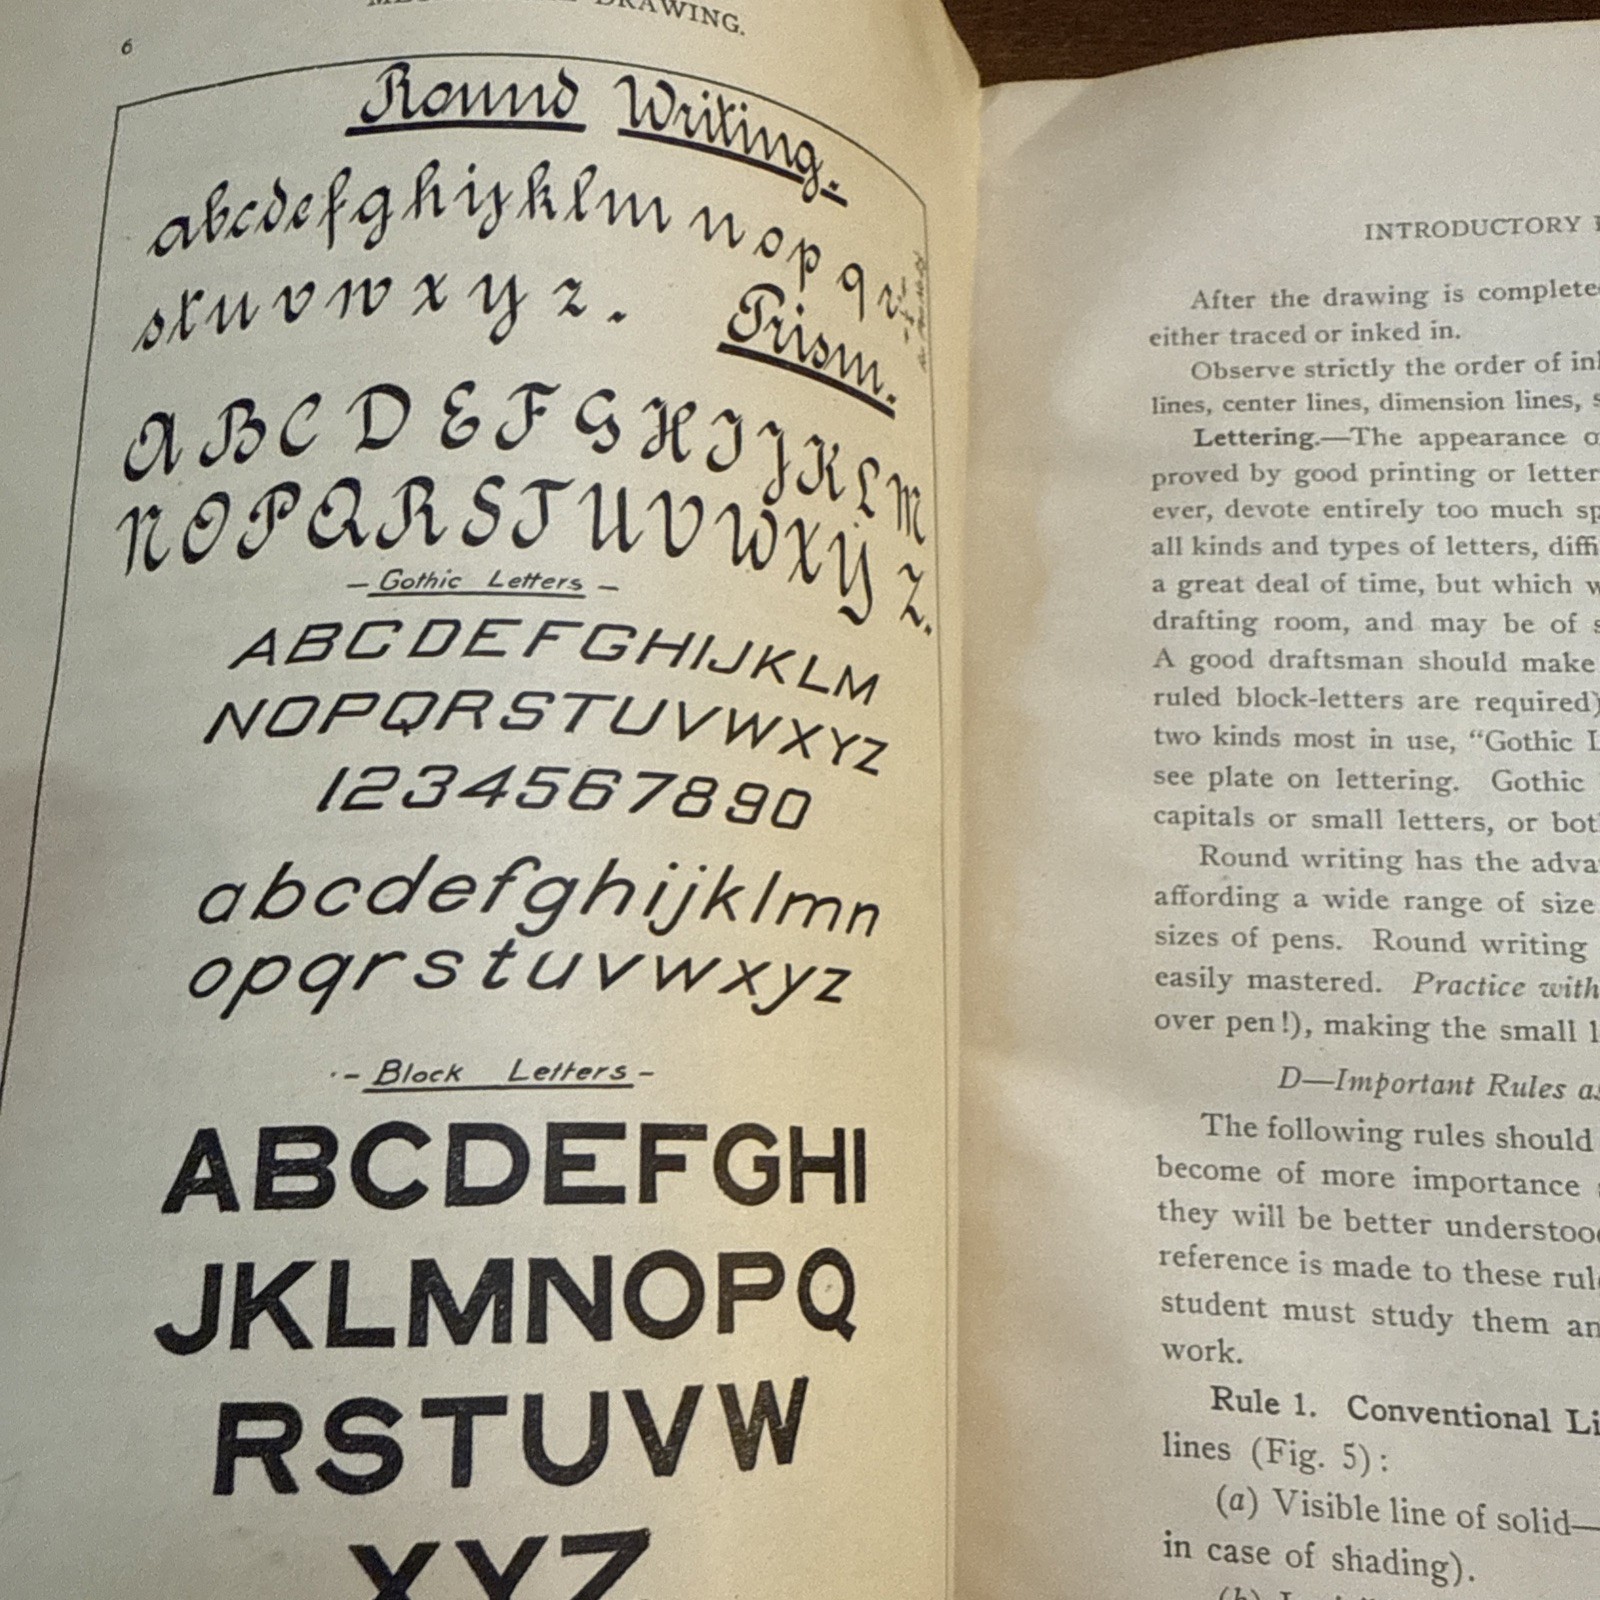 6
DRAWING.
Round Writing.
abcdefghijklmnopqr
stuvwxyz.
Prism.
ABCDEFGHIJKLM
NOPQRSTUVWXYZ.
- Gothic Letters -
ABCDEFGHIJKLM
NOPQRSTUVWXYZ
1234567890
abcdefghijklmn
opqrstuvwxyz
- Block Letters -
ABCDEFGHI
JKLMNOPQ
RSTUVW
XYZ
INTRODUCTORY
After the drawing is complete
either traced or inked in.
Observe strictly the order of in
lines, center lines, dimension lines, s
Lettering.—The appearance o
proved by good printing or letter
ever, devote entirely too much sp
all kinds and types of letters, diffi
a great deal of time, but which w
drafting room, and may be of s
A good draftsman should make
ruled block-letters are required)
two kinds most in use, “Gothic L
see plate on lettering. Gothic
capitals or small letters, or bot
Round writing has the adva
affording a wide range of size
sizes of pens. Round writing
easily mastered. Practice with
over pen!), making the small l
D—Important Rules as
The following rules should
become of more importance
they will be better understoo
reference is made to these rul
student must study them an
work.
Rule 1. Conventional Li
lines (Fig. 5):
(a) Visible line of solid—
in case of shading).